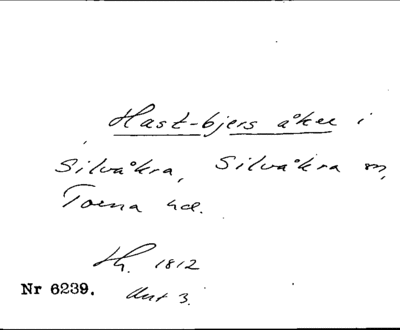 Hast-bjers åker i
Silvåkra, Silvåkra sn,
Torna hd.
Th. 1812
Nr 6239. Akt 3.